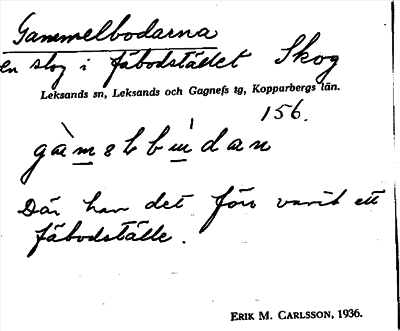 Gammelbodarna
en skog i fäbodstället Skog
Leksands sn, Leksands och Gagnefs tg, Kopparbergs län.
156.
Där har det förr varit ett
fäbodställe.
ERIK M. CARLSSON, 1936.